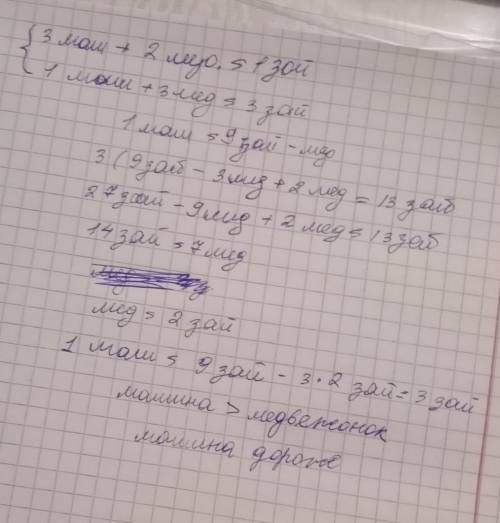 { 3 маш + 2 мед. = 1 зай
1 маш + 3 мед = 3 зай
1 маш = 9 зай - мед
3 (9 зай - 3 мед + 2 мед = 13 зай
27 зай - 9 мед + 2 мед = 13 зай
14 зай = 7 мед
мед = 2 зай
1 маш = 9 зай - 3 · 2 зай = 3 зай
машина > медвежонок
машина дороже